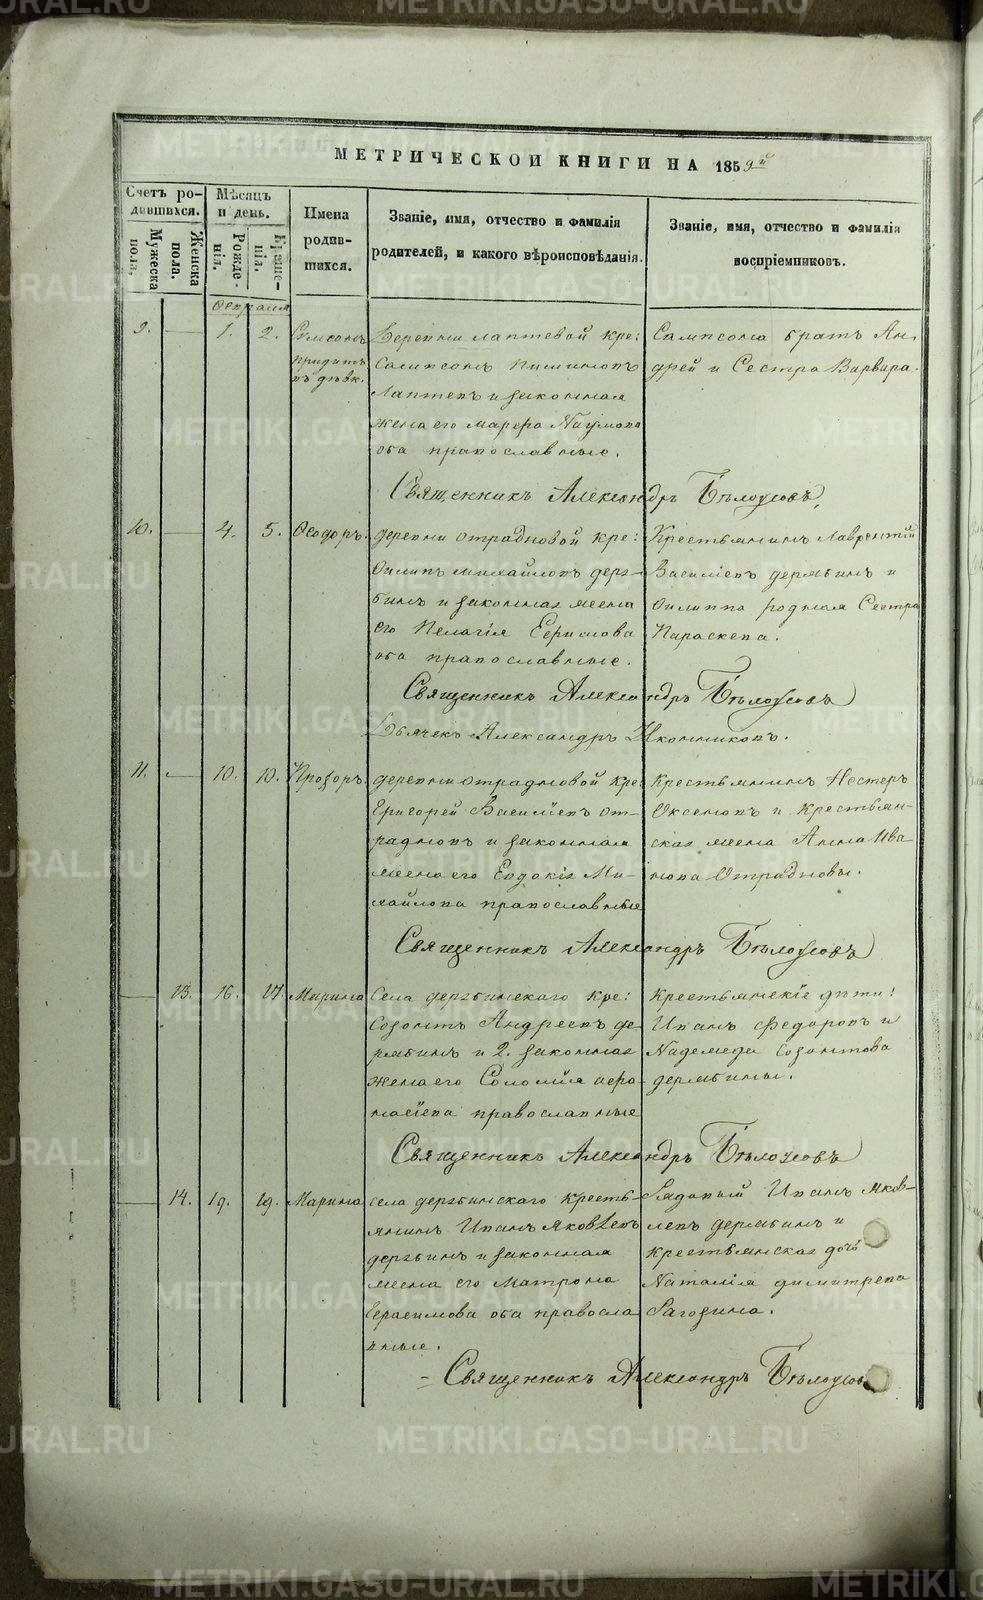 МЕТРИЧЕСКОЙ КНИГИ НА 1859й
Счетъ родившихся.
Мужеска пола.
Женска пола.
Мѣсяцъ и день.
Рожденія.
Крещенія.
Имена родившихся.
Званіе, имя, отчество и фамилія
родителей, и какого вѣроисповѣданія.
Званіе, имя, отчество и фамилія
воспріемниковъ.
Февраля
9. 1. 2. Симсонъ
Деревни лаптевой кре:
Сампсонъ Пиминовъ
Лаптевъ и законная
жена его Марфа Наумова
оба православные.
Сампсона братъ Ан-
дрей и Сестра Варвара.
Священникъ Александръ Бѣлоусовъ,
10. 4. 5. Ѳеодоръ.
деревни отрадновой кре:
Филипъ михайловъ деря-
бинъ и законная жена
его Пелагія Ефимова
оба православные.
Крестьянинъ Лаврентій
Василіевъ дерябинъ и
Филиппа родная Сестра
Параскева.
Священникъ Александръ Бѣлоусовъ
Дьячекъ Александръ Иконниковъ.
11. 10. 10. Прозоръ.
деревни отрадновой кре:
Григорей Василіевъ от-
радновъ и законная
жена его Евдокія Ми-
хайлова православные
Крестьянинъ Нестеръ
Оксеновъ и крестьян-
ская жена Анна Ива
нова Отрадновы.
Священникъ Александръ Бѣлоусовъ
13. 16. 17. Марина
Села дерябинскаго кре:
Созонтъ Андреевъ де-
рябинъ и 2. законная
жена его Соломія афа-
насіева православные
Крестьянскіе дѣти:
Иванъ Федоровъ и
Надежда Созонтова
дерябины.
Священникъ Александръ Бѣлоусовъ
14. 19. 19. Марина
села дерябинскаго кресть-
янинъ Иванъ Яковлевъ
дерябинъ и законная
жена его Матрона
Герасимова оба правосла
вные.
Рядовый Иванъ Яков-
левъ дерябинъ и
крестьянская дочь
Наталія димитрева
Рагозина.
Священникъ Александръ Бѣлоусовъ
METRIKI.GASO-URAL.RU